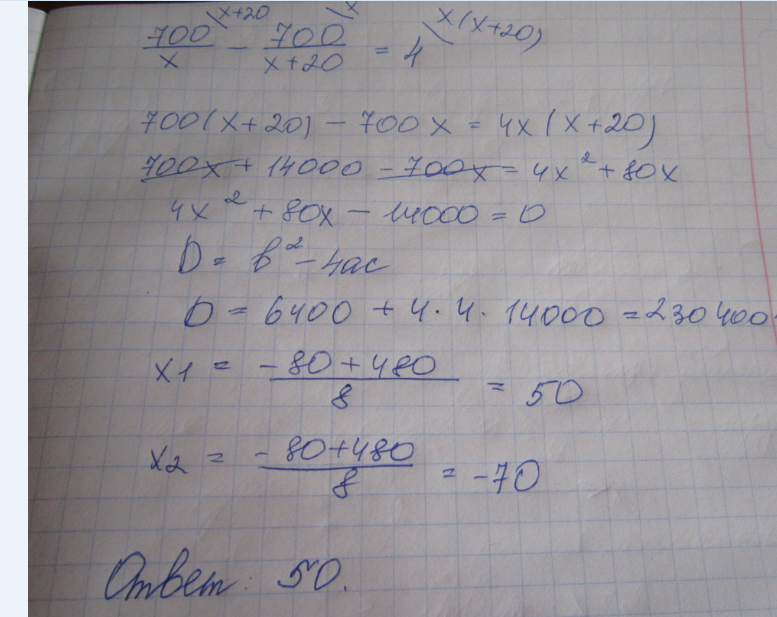 700/x \x+20 - 700/(x+20) \x = 4 \x(x+20)
700(x+20) - 700x = 4x(x+20)
700x + 14000 - 700x = 4x² + 80x
4x² + 80x - 14000 = 0
D = b² - 4ac
D = 6400 + 4·4·14000 = 230400
x1 = (-80+480)/8 = 50
x2 = (-80+480)/8 = -70
Ответ: 50.